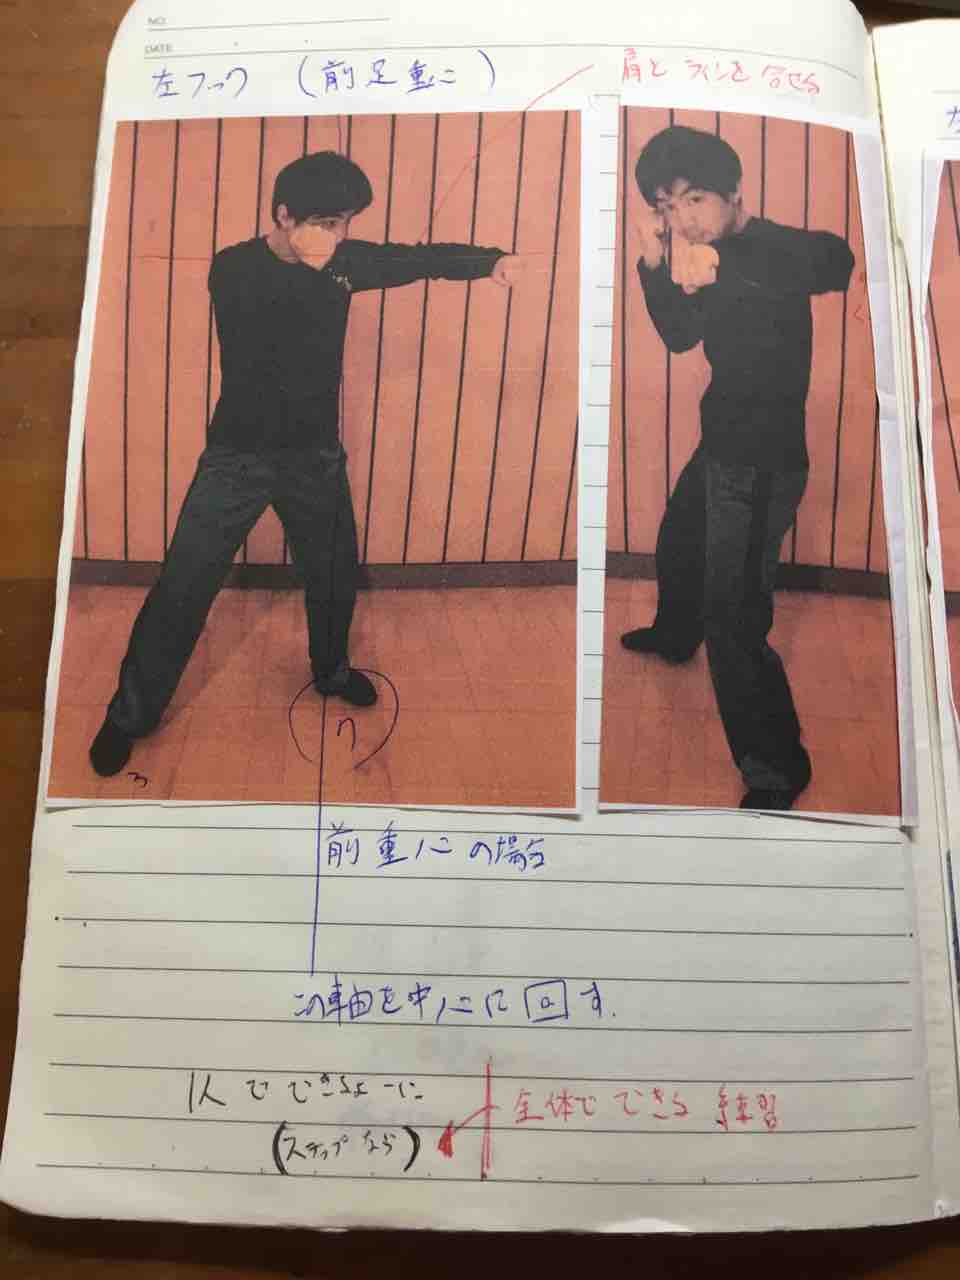 NO.
DATE
左フック (前足重心)
肩とラインを合せる
7
3
前重心の場合
この軸を中心に回す.
1人でできるように
(ステップなら)
全体でできる練習
左